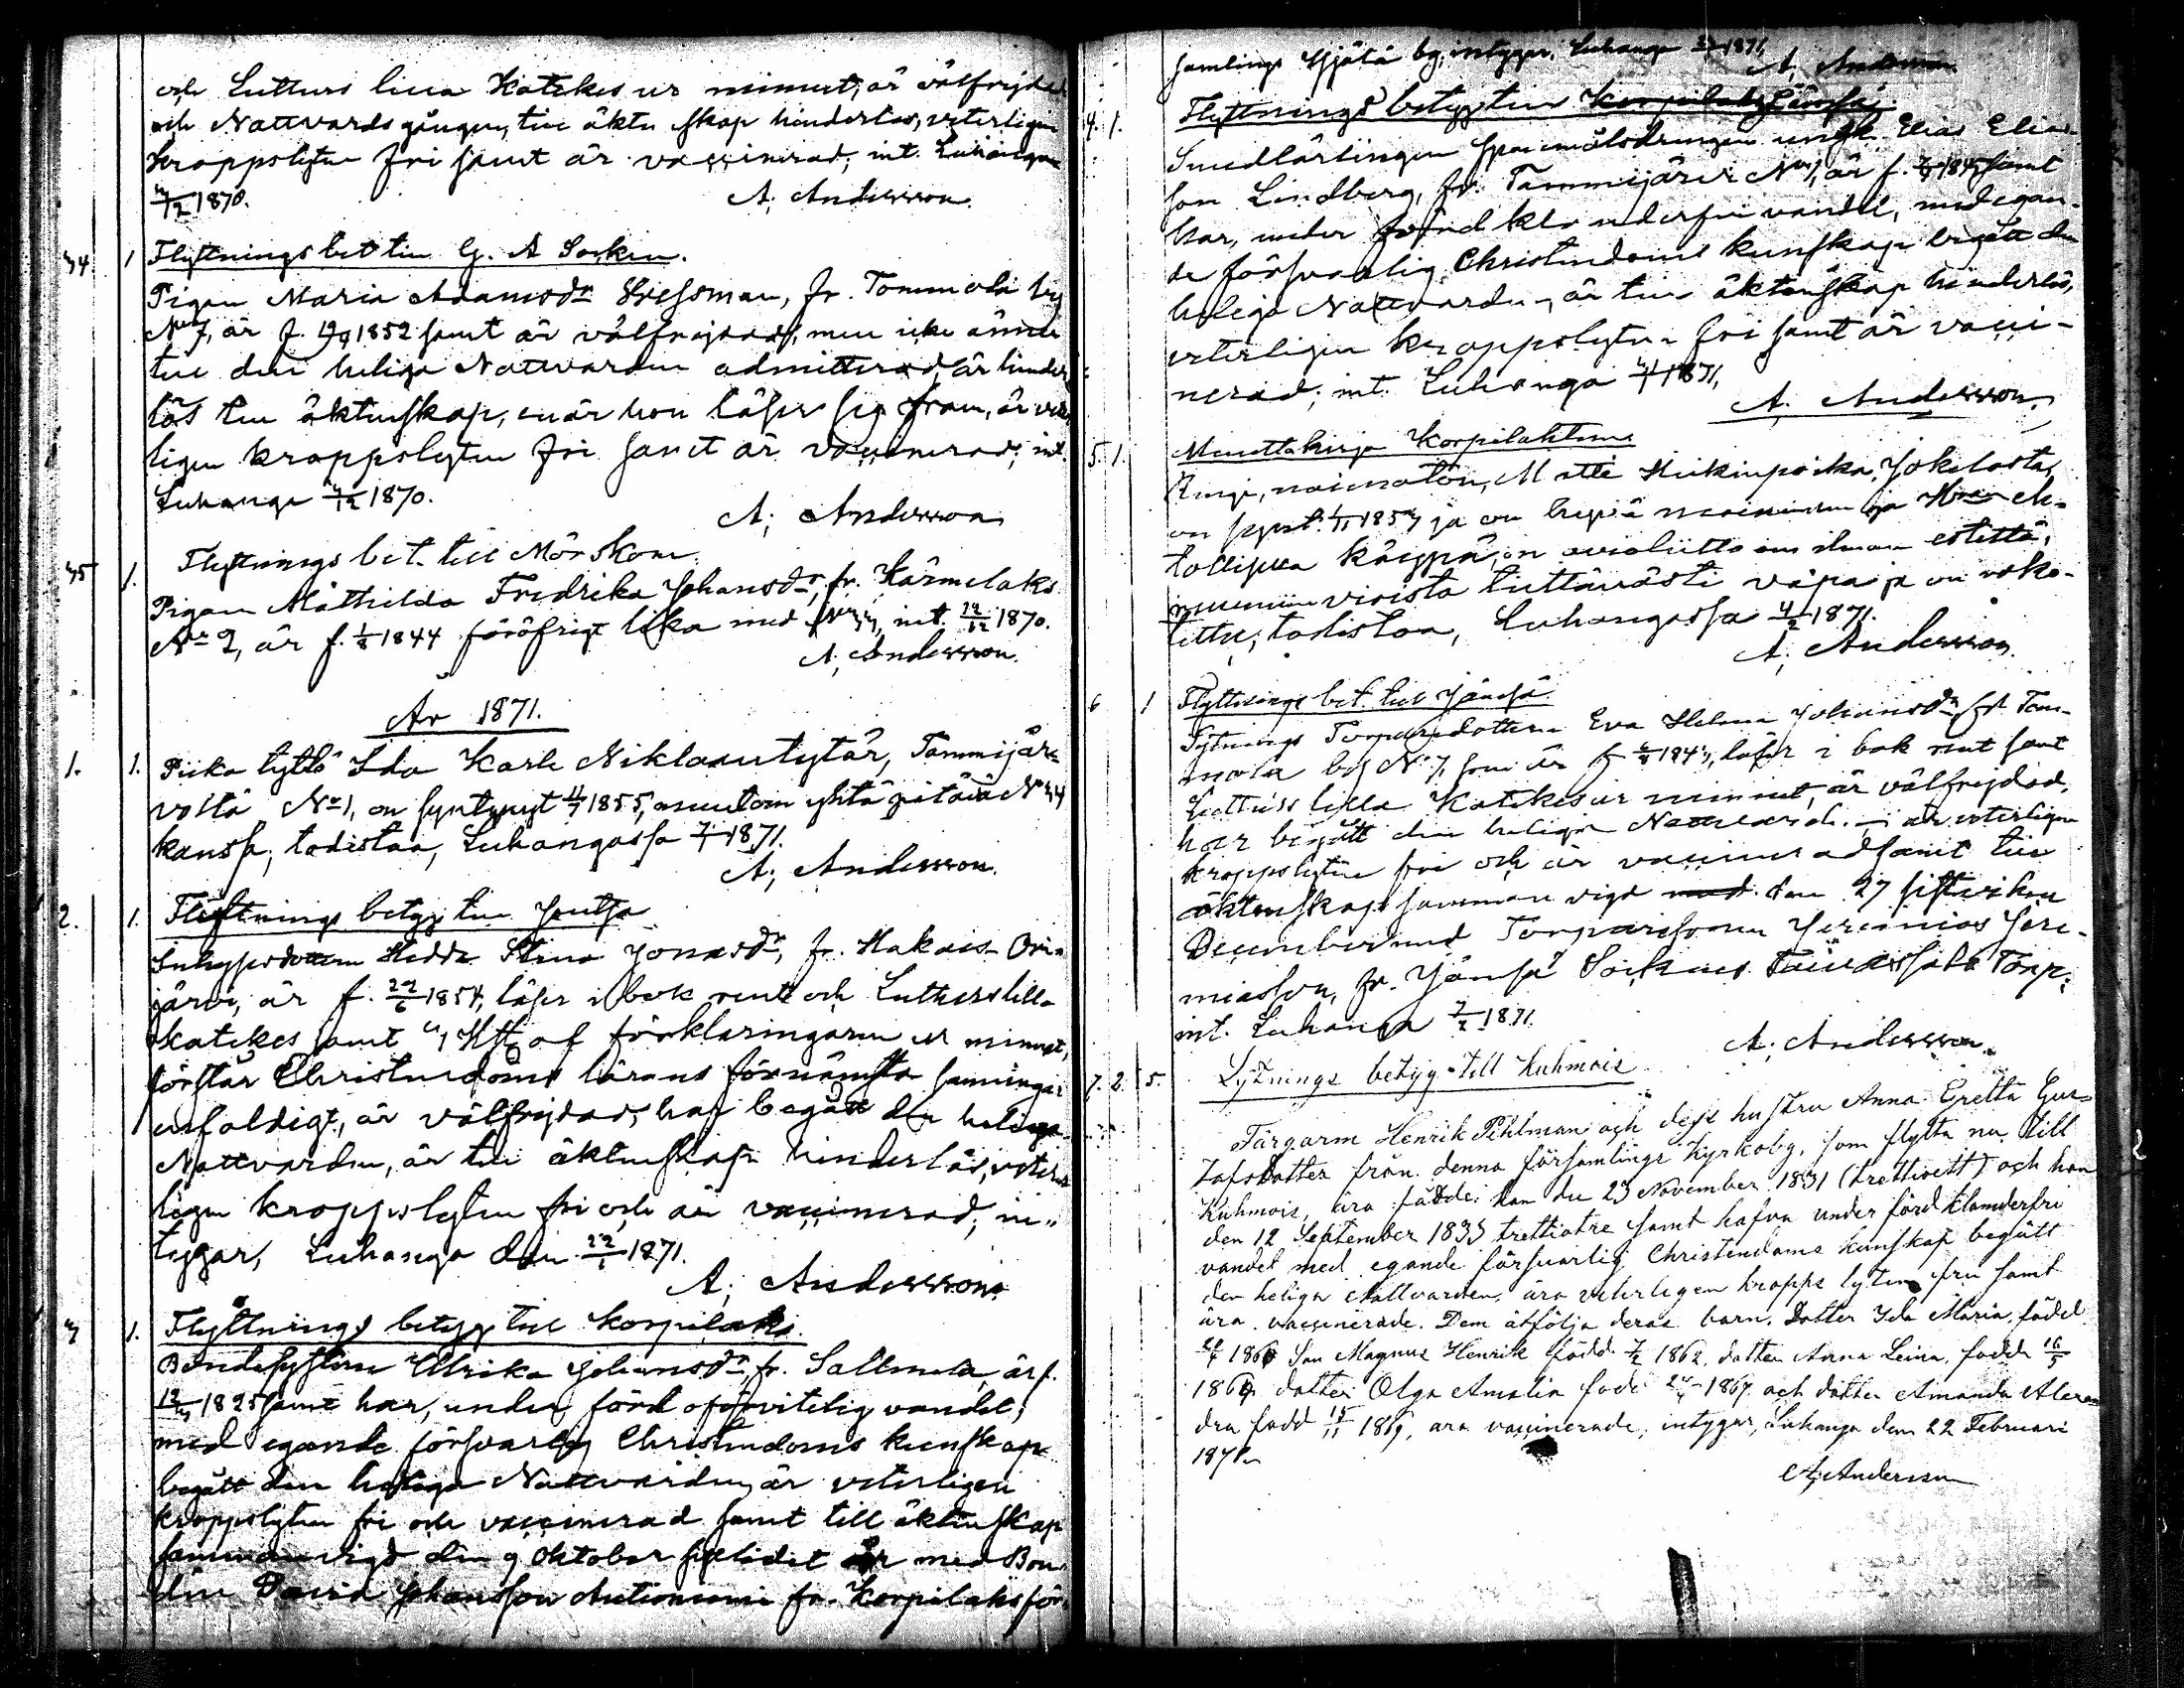 och Lutters lilla Katekes ur minnet, är välfrejdad
och Nattvards gången, till äktenskap hinderlös, veterligen
kroppslyten fri samt är vaccinerad, int. Luhanga
4/12 1870. A. Andersson.
34 1 Flyttningsbet till G. A Socken.
Pigan Maria Adamsdr Hressman, fr. Tommola by
No 7, är f. 19/9 1852 samt är välfrejdad, men icke ännu
till den heliga Nattvarden admitterad, är hinder
lös till äktenskap, när hon läser sig fram, är veter
ligen kroppslyten fri samt är vaccinerad, int.
Luhanga 4/12 1870.
A. Andersson
35 1. Flyttnings bet. till Mörskom
Pigan Mathilda Fredrika Johansdr, fr. Kärmelaks
No 2, är f. 1/8 1844 föröfrigt lika med No 34, int. 19/12 1870.
A. Andersson.
År 1871.
1. 1. Piika tyttö Ida Karle Niklaxentytär, Tammijär-
veltä No 1, on syntynyt 11/7 1855, muutoin yhtä pitävä No 34
kanssa, todistaa, Luhangassa 7/1 1871.
A. Andersson.
2. 1. Flyttnings betyg till Joutsa
Inhysesdottern Hedda Stina Jonasdr, fr. Hakais-Ori-
järvi, är f. 22/6 1854, läser i bok rent och Lutherslilla
katekes samt 4 Hst af förklaringarne ur minnet,
förstår Christendoms lärans förnämsta sanningar
enfaldigt, är välfrejdad, har begått den heliga
Nattvarden, är till äktenskap hinderlös, veter
ligen kroppslyten fri och är vaccinerad, in-
tygar, Luhanga den 22/1 1871.
A. Andersson
3 1. Flyttnings betyg till Korpilaks
Bondesystern Ulrika Johansdr, fr. Sallmela, är f.
1825 samt har, under förd oförvitelig vandel,
med egande försvarlig Christendoms kunskap
begått den heliga Nattvarden, är veterligen
kroppslyten fri och vaccinerad samt till äktenskap
sammanvigd den 9 Oktober sistlidet år med Bon-
den David Johansson Antinniemi fr. Korpilaks för-
samlings Hjätä by, intygar, Luhanga 1871.
A. Andersson.
4. 1. Flyttnings betyg till Korpilaks Jämsä
Smedlärlingen ungk. Elias Elias-
son Lindberg, fr. Tammijärvi No 1, är f. 1845 samt
har, under förd klanderfri vandel, med egan-
de försvarlig Christendoms kunskap begått den
heliga Nattvarden, är till äktenskap hinderlös,
veterligen kroppslyten fri samt är vacci-
nerad, int. Luhanga 1871.
A. Andersson.
5. 1. Muuttokirja Korpilahteen
Renki, naimatoin, Matti Heikinpoika, Jokelasta,
on synt. 1/11 1854 ja on hyviä maineinen ja
tollisella käypä, on avioliittoonsa ilman estettä,
ruumiin viasta tiettävästi vapa ja on roko-
tettu, todistaa, Luhangassa 4/2 1871.
A. Andersson.
6 1 Flyttnings bet. till Jämsä
Torparedottern Eva Helena Johansdr fr. Tom-
mola by No 7, som är f. 1843, läser i bok rent samt
Luthers lilla Katekes ur minnet, är välfrejdad,
har begått den heliga Nattvarden, är veterligen
kroppslyten fri och är vaccinerad samt till
äktenskap sammanvigd med den 27 sistvikne
December med Torparesonen Jeremias Jere-
miasson, fr. Jämsä Sockens Torp,
int. Luhanga 7/2 1871.
A. Andersson.
7. 2. 5. Lytnings betyg till Kuhmois
Färgarm Henrik Pihlman och dess hustru Anna Gretta Gus-
tafsdotter från denna församlings Kyrkoby, som flytta nu till
Kuhmois, äro födde: han den 23 November 1831 (trettioett) och hon
den 12 September 1833 trettiotre samt hafva under förd klanderfri
vandel med egande försvarlig Christendoms kunskap begått
den heliga Nattvarden, äro veterligen kropps lyten fria samt
äro vaccinerade. Dem åtfölja deras barn, Dotter Ida Maria, född
1860 Son Magnus Henrik född 7/2 1862, dotter Anna Leina, född 16/5
1864 dotter Olga Amalia född 1867 och dotter Amanda Alexan
dra född 15/11 1869, äro vaccinerade, intygar, Luhanga den 22 Februari
1871.
A. Andersson